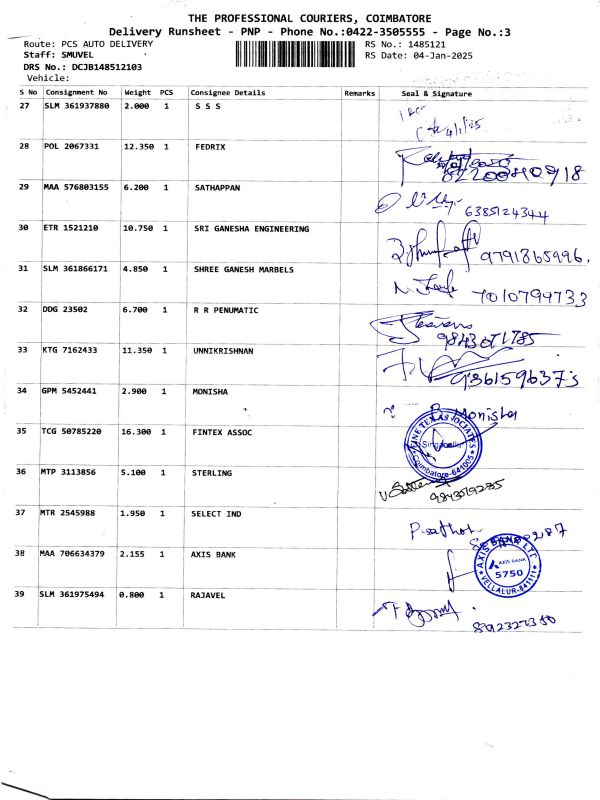 THE PROFESSIONAL COURIERS, COIMBATORE
Delivery Runsheet - PNP - Phone No.:0422-3505555 - Page No.:3
Route: PCS AUTO DELIVERY
RS No.: 1485121
Staff: SMUVEL
RS Date: 04-Jan-2025
DRS No.: DCJB148512103
Vehicle:
S No Consignment No Weight PCS Consignee Details Remarks Seal & Signature
27 SLM 361937880 2.000 1 S S S
4/1/25
28 POL 2067331 12.350 1 FEDRIX
8220040918
29 MAA 576803155 6.200 1 SATHAPPAN
6385124344
30 ETR 1521210 10.750 1 SRI GANESHA ENGINEERING
9791865996.
31 SLM 361866171 4.850 1 SHREE GANESH MARBELS
7010794733
32 DDG 23502 6.700 1 R R PENUMATIC
9843071785
33 KTG 7162433 11.350 1 UNNIKRISHNAN
9361596373
34 GPM 5452441 2.900 1 MONISHA
Monisha
35 TCG 50785220 16.300 1 FINTEX ASSOC
Coimbatore-641005
36 MTP 3113856 5.100 1 STERLING
37 MTR 2545988 1.950 1 SELECT IND
38 MAA 706634379 2.155 1 AXIS BANK
AXIS BANK LTD
AXIS BANK
5750
VELLALUR-641111
39 SLM 361975494 0.800 1 RAJAVEL